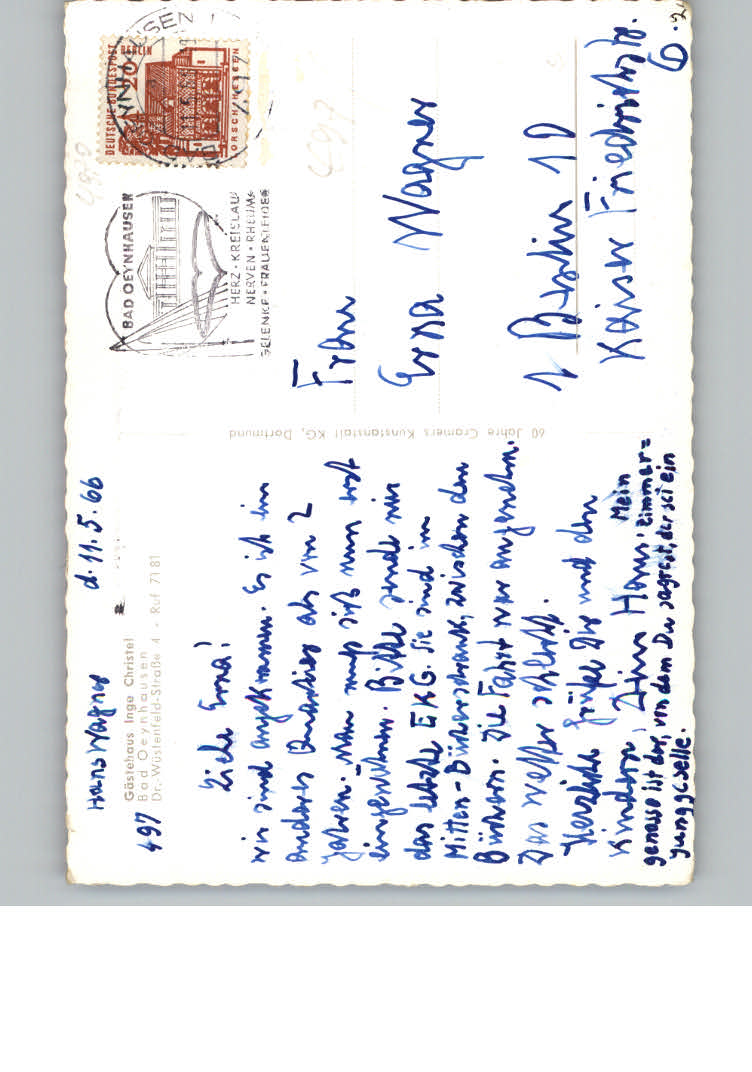 Hans Wagner d. 11.5.66
Gästehaus Inge Christel
Bad Oeynhausen
Dr. Wüstenfeld-Straße 4 - Ruf 7181
497
Liebe Erna!
wir sind angekommen. Es ist ein
anderes Quartier als vor 2
Jahren. Man muß sich nun erst
eingewöhnen. Bitte sende mir
das letzte EKG. Sie sind im
Mitten-Bücherschrank, zwischen den
Büchern. Die Fahrt war angenehm.
Das Wetter schlecht.
Herzliche Grüße Dir und den
Kindern, Dein Hans. Mein
Zimmer=
genosse ist der, von dem Du sagtest, der sei ein
Junggeselle.
60 Jahre Cramers Kunstanstalt KG, Dortmund
DEUTSCHE BUNDESPOST BERLIN
20
LORSCH/HESSEN
BAD OEYNHAUSEN
HERZ · KREISLAUF
NERVEN · RHEUMA
GELENKE · FRAUENLEIDEN
Frau
Erna Wagner
1 Berlin 10
Kaiser Friedrichstr.
6.